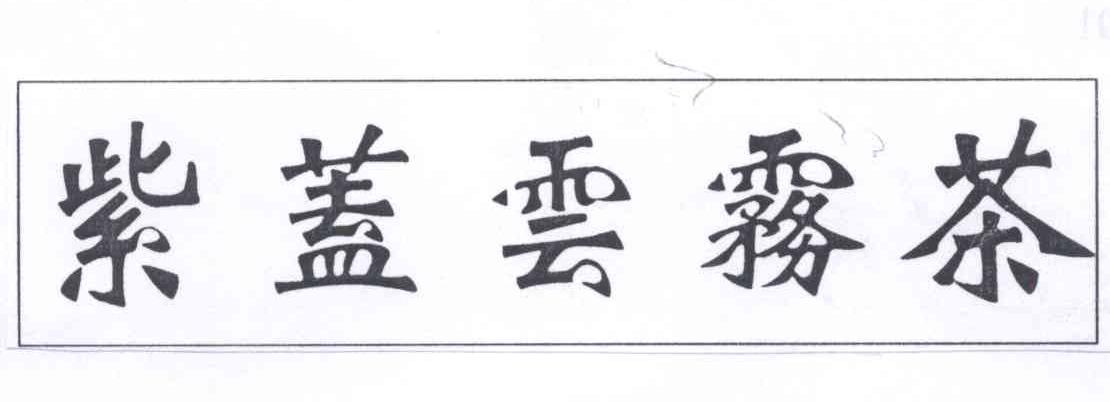 紫蓋雲霧茶